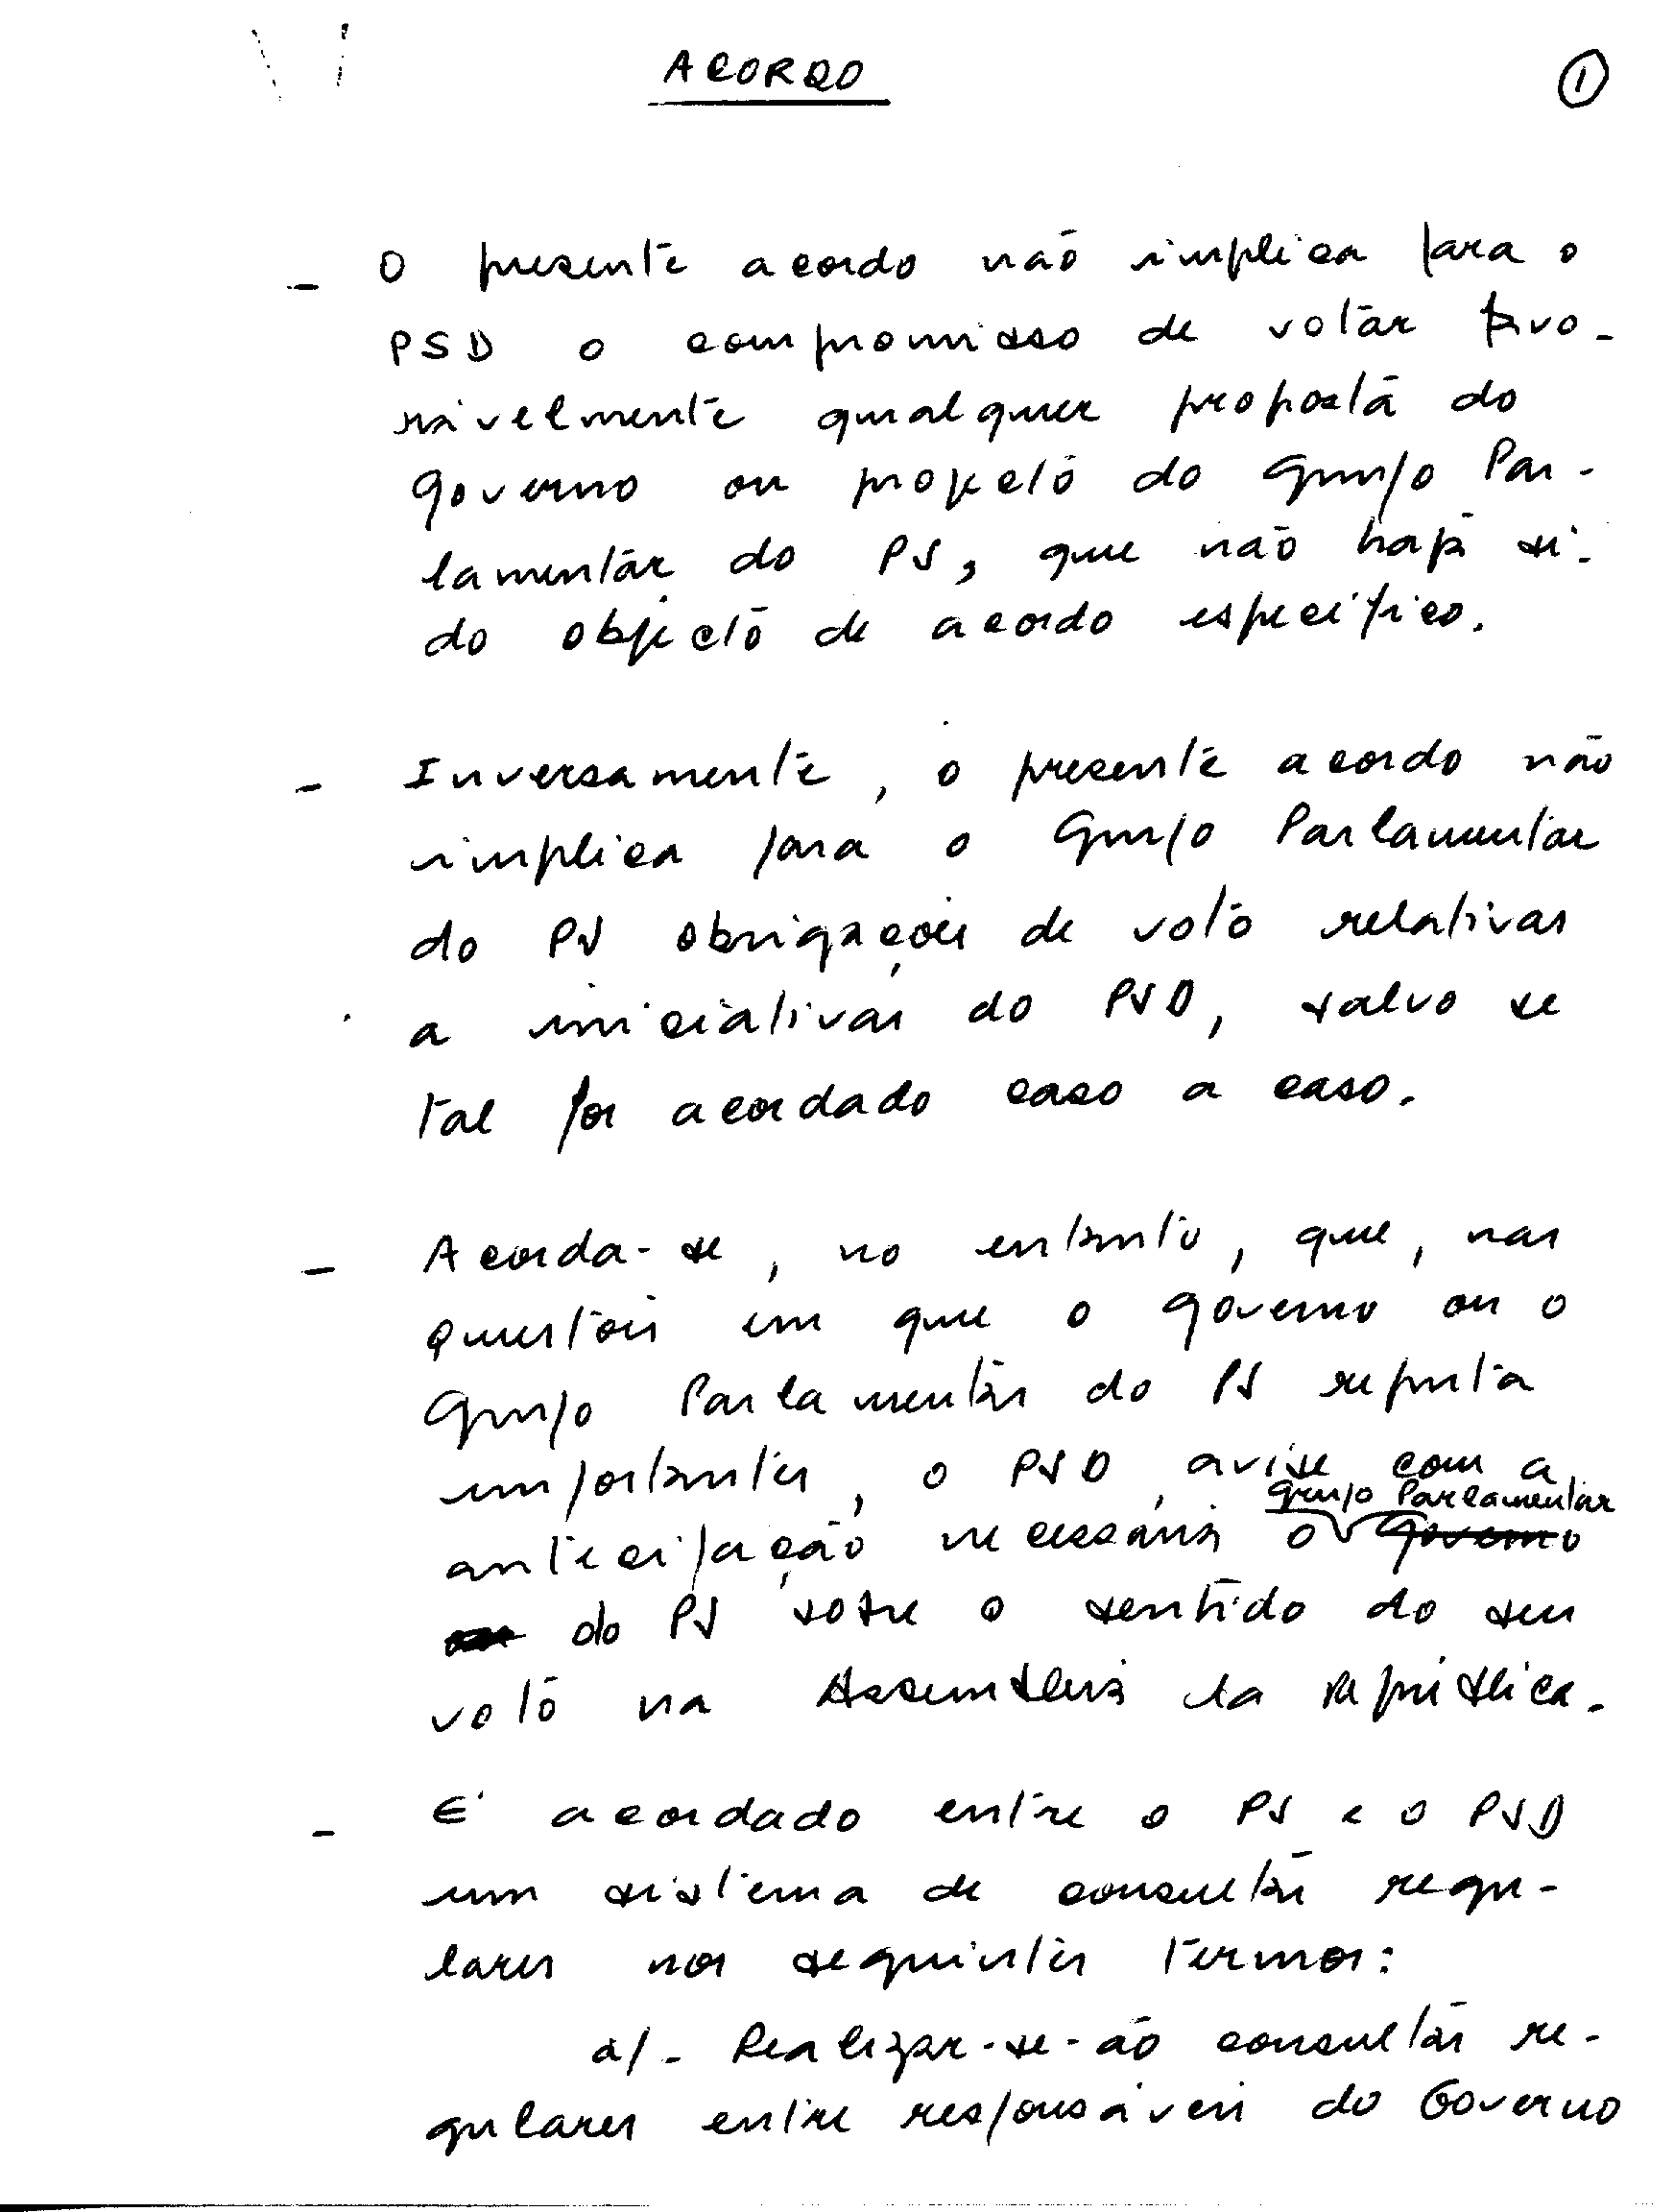 ACORDO
1
- O presente acordo não implica para o
PSD o compromisso de votar favo-
ravelmente qualquer proposta do
Governo ou projecto do Grupo Par-
lamentar do PS, que não haja si-
do objecto de acordo específico.
- Inversamente, o presente acordo não
implica para o Grupo Parlamentar
do PS obrigações de voto relativas
a iniciativas do PSD, salvo se
tal for acordado caso a caso.
- Acorda-se, no entanto, que, nas
questões em que o Governo ou o
Grupo Parlamentar do PS reputa
importantes, o PSD, avise com a
Grupo Parlamentar
antecipação necessária o Governo
do PS sobre o sentido do seu
voto na Assembleia da República.
- É acordado entre o PS e o PSD
um sistema de consultas regu-
lares nos seguintes termos:
a/- Realizar-se-ão consultas re-
gulares entre responsáveis do Governo